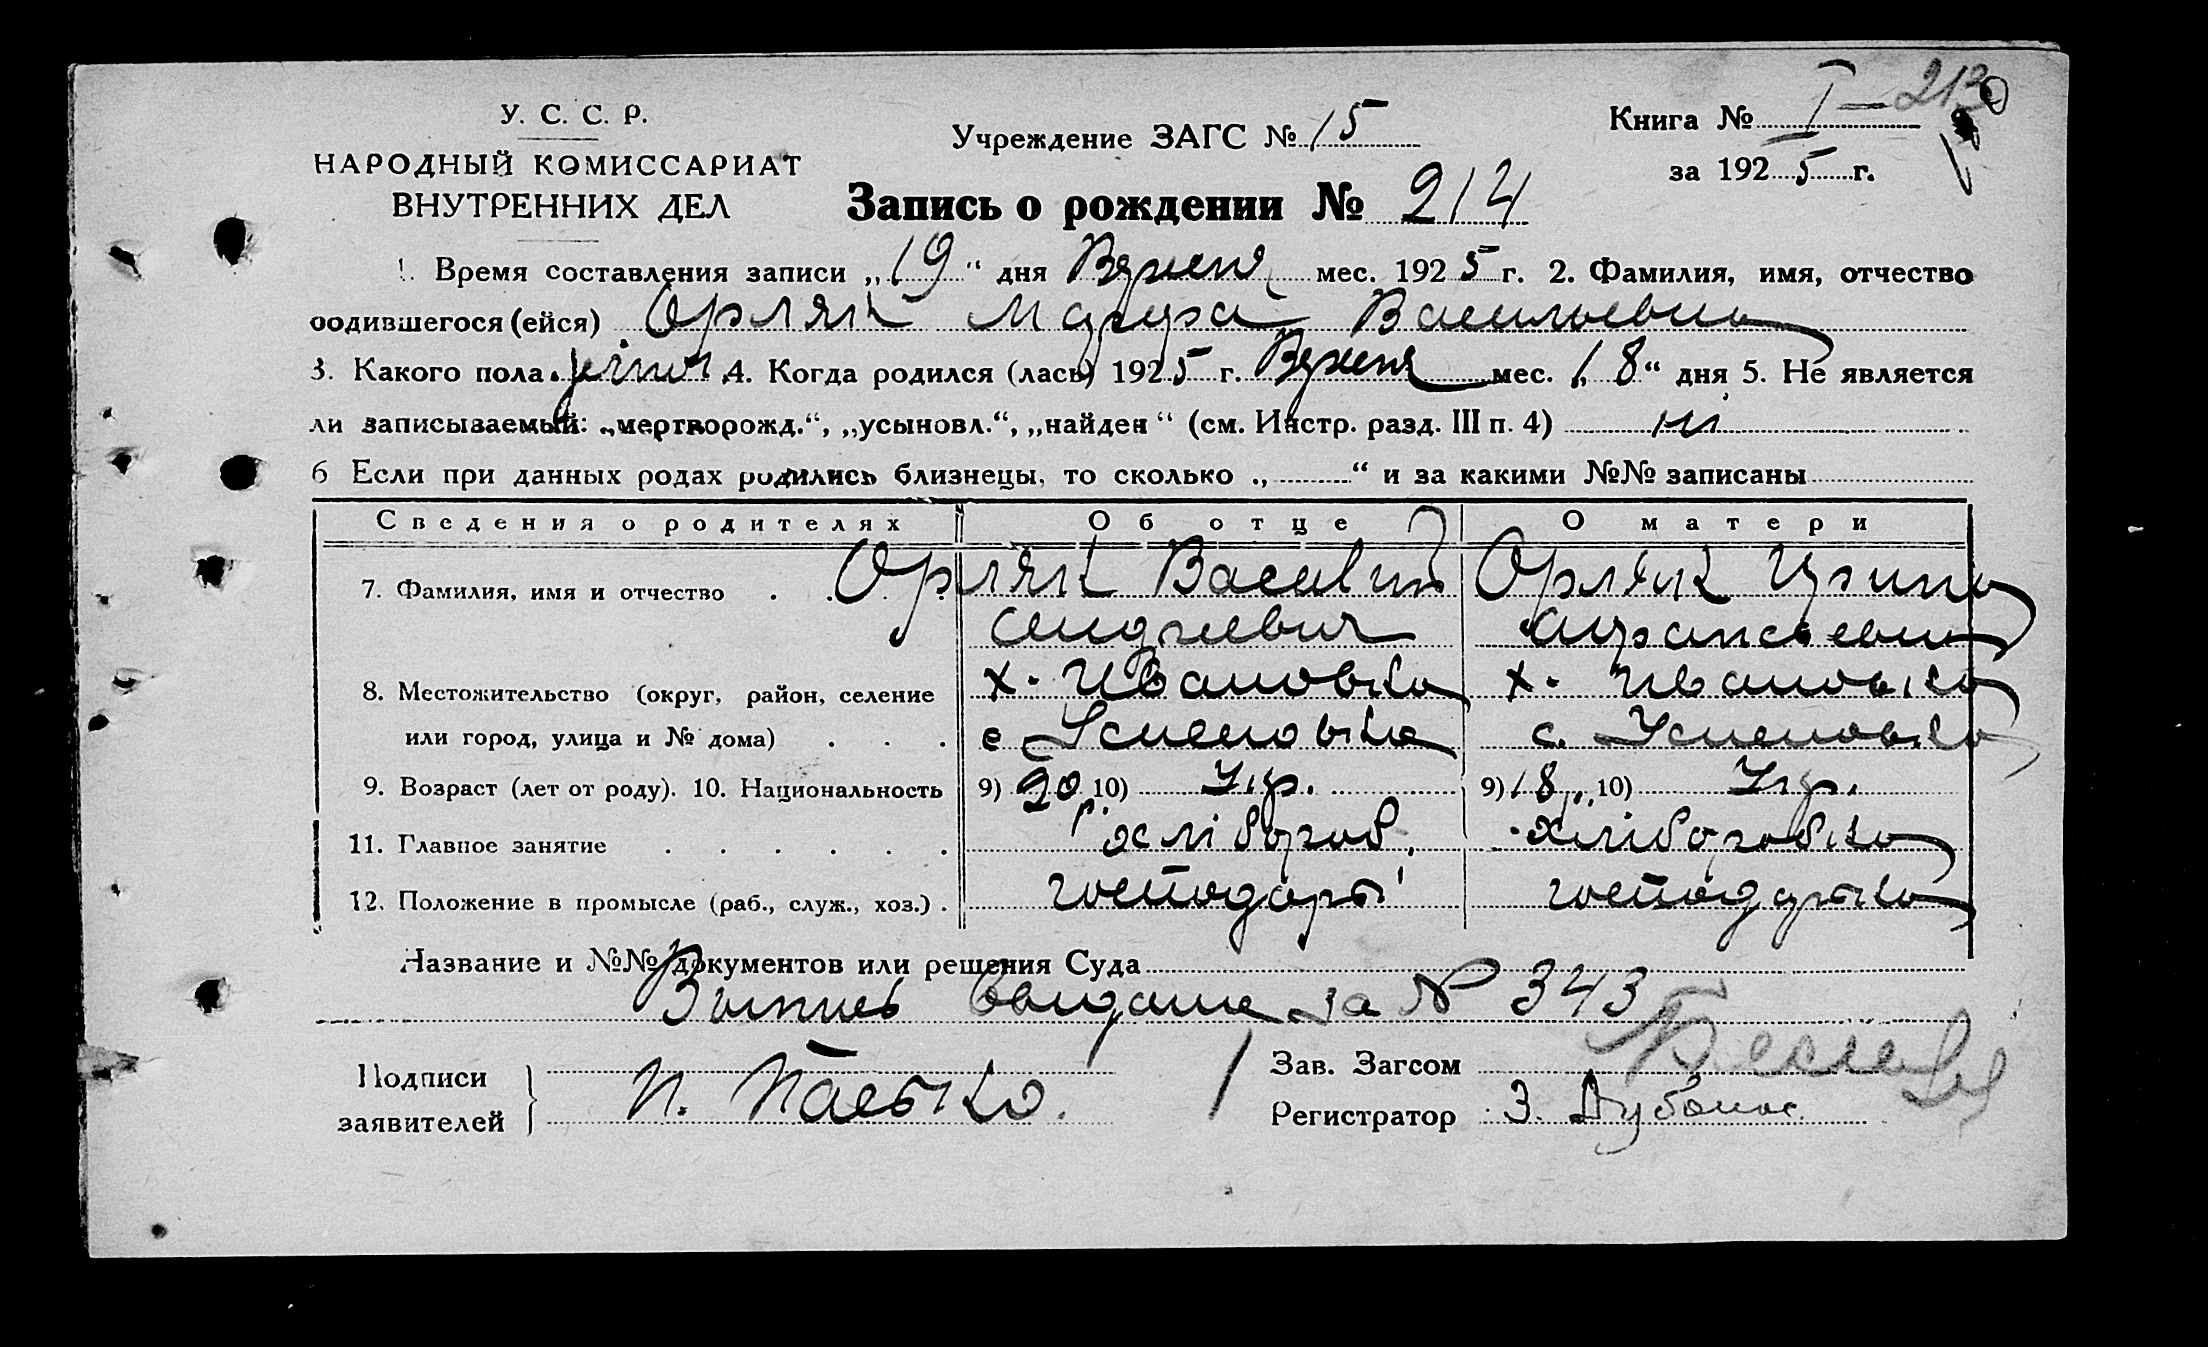 У. С. С. Р.
НАРОДНЫЙ КОМИССАРИАТ
ВНУТРЕННИХ ДЕЛ
Учреждение ЗАГС № 15
Книга № I — 213
за 1925 г.
Запись о рождении № 214
1. Время составления записи „19“ дня мес. 1925 г. 2. Фамилия, имя, отчество
родившегося (ейся) Орляк Васильевна
3. Какого пола 4. Когда родился (лась) 1925 г. мес. „18“ дня 5. Не является
ли записываемый: „мертворожд.“, „усыновл.“, „найден“ (см. Инстр. разд. III п. 4) ні
6 Если при данных родах родились близнецы, то сколько „ “ и за какими №№ записаны
Сведения о родителях Об отце О матери
7. Фамилия, имя и отчество Орляк Василий Орляк
8. Местожительство (округ, район, селение х. Ивановка х. Ивановка
или город, улица и № дома) с. Успеновка с. Успеновка
9. Возраст (лет от роду). 10. Национальность 9) 20 р. 10) Укр. 9) 18 р. 10) Укр.
11. Главное занятие хлібороб. хліборобка
12. Положение в промысле (раб., служ., хоз.) господарь господарька
Название и №№ документов или решения Суда
Выпись выдана за № 343
Подписи
заявителей
П.
Зав. Загсом
Регистратор З.